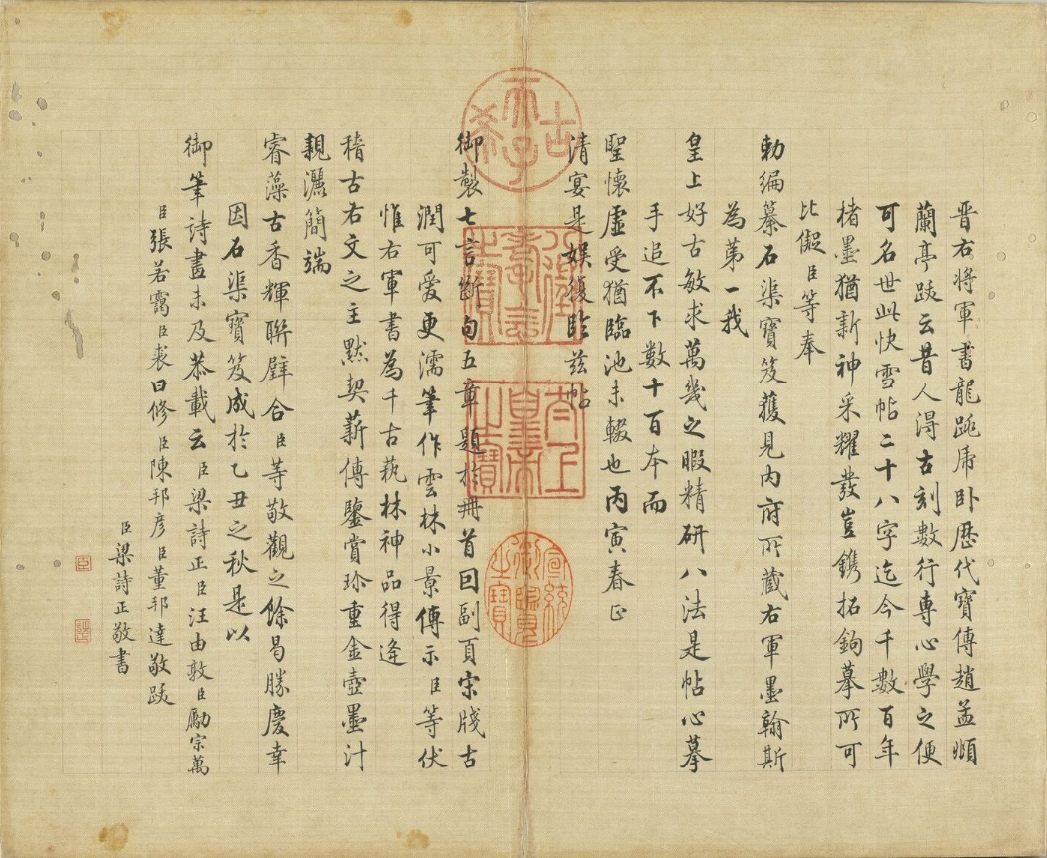 晉右將軍書龍跳虎臥歷代寶傳趙孟頫
蘭亭跋云昔人得古刻數行專心學之便
可名世此快雪帖二十八字迄今千數百年
楮墨猶新神采耀發豈鐫拓鉤摹所可
比儗臣等奉
勅編纂石渠寶笈獲見內府所藏右軍墨翰斯
為苐一我
皇上好古敏求萬幾之暇精研八法是帖心摹
手追不下數十百本而
聖懷虛受猶臨池未輟也丙寅春正
清宴是娛復臨茲帖
御製七言斷句五章題於冊首回副頁宋牋古
潤可愛更濡筆作雲林小景傳示臣等伏
惟右軍書為千古萟林神品得逢
稽古右文之主默契薪傳鑒賞珍重金壺墨汁
親灑簡端
睿藻古香輝聯璧合臣等敬觀之餘曷勝慶幸
因石渠寶笈成於乙丑之秋是以
御筆詩畫未及恭載云臣梁詩正臣汪由敦臣勵宗萬
臣張若靄臣裘曰修臣陳邦彥臣董邦達敬跋
臣梁詩正敬書
古
希
天子
八徵耄念之寶
太上皇帝之寶
宣統御覽之寶
臣